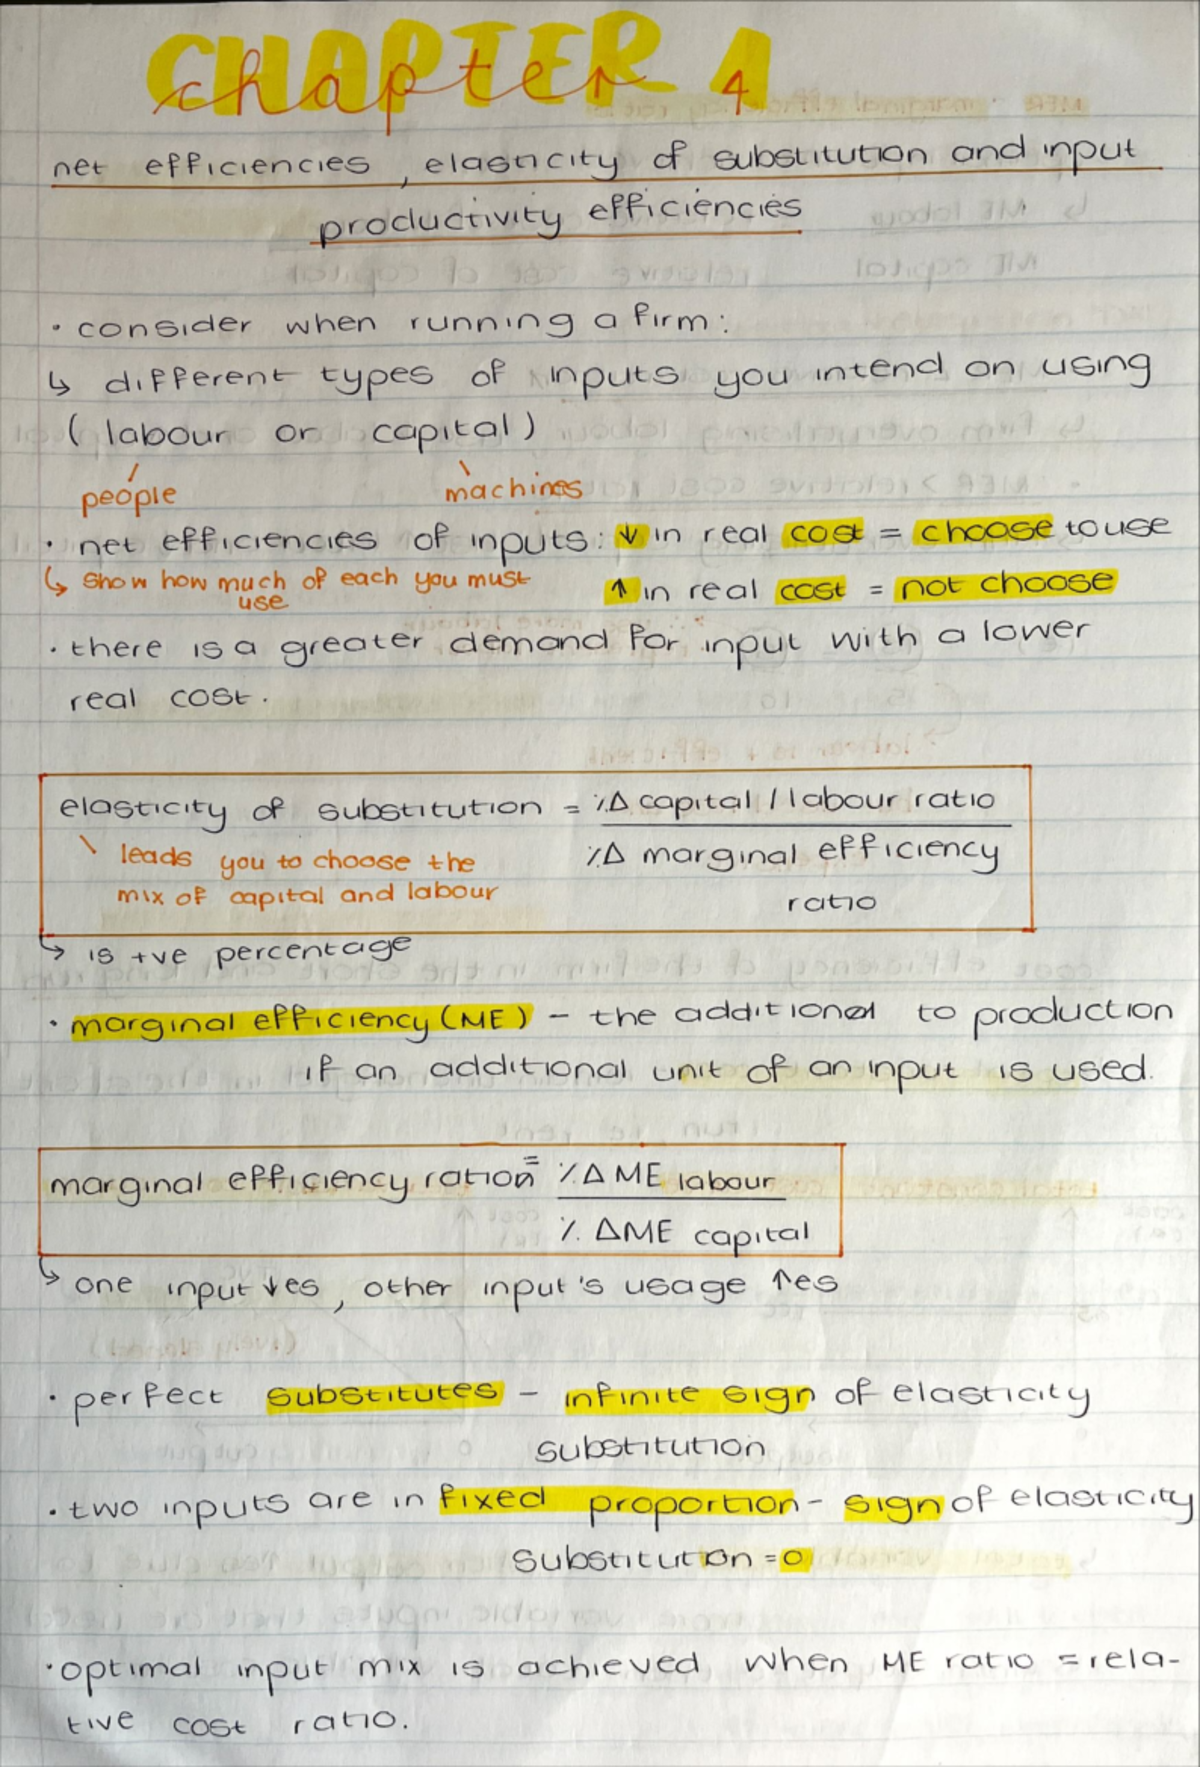 CHAPTER 4
chapter 4
net efficiencies, elasticity of substitution and input
productivity efficiencies
· consider when running a firm:
↳ different types of inputs you intend on using
(labour or capital)
people machines
· net efficiencies of inputs: ↓ in real cost = choose to use
↳ show how much of each you must
use
↑ in real cost = not choose
· there is a greater demand for input with a lower
real cost.
elasticity of substitution = %Δ capital / labour ratio
%Δ marginal efficiency
ratio
leads you to choose the
mix of capital and labour
↳ is +ve percentage
· marginal efficiency (ME) - the additional to production
if an additional unit of an input is used.
marginal efficiency ration = %Δ ME labour
% ΔME capital
↳ one input ↓es, other input's usage ↑es
· perfect substitutes - infinite sign of elasticity
substitution
· two inputs are in fixed proportion - sign of elasticity
substitution = 0
· optimal input mix is achieved when ME ratio = rela-
tive cost ratio.